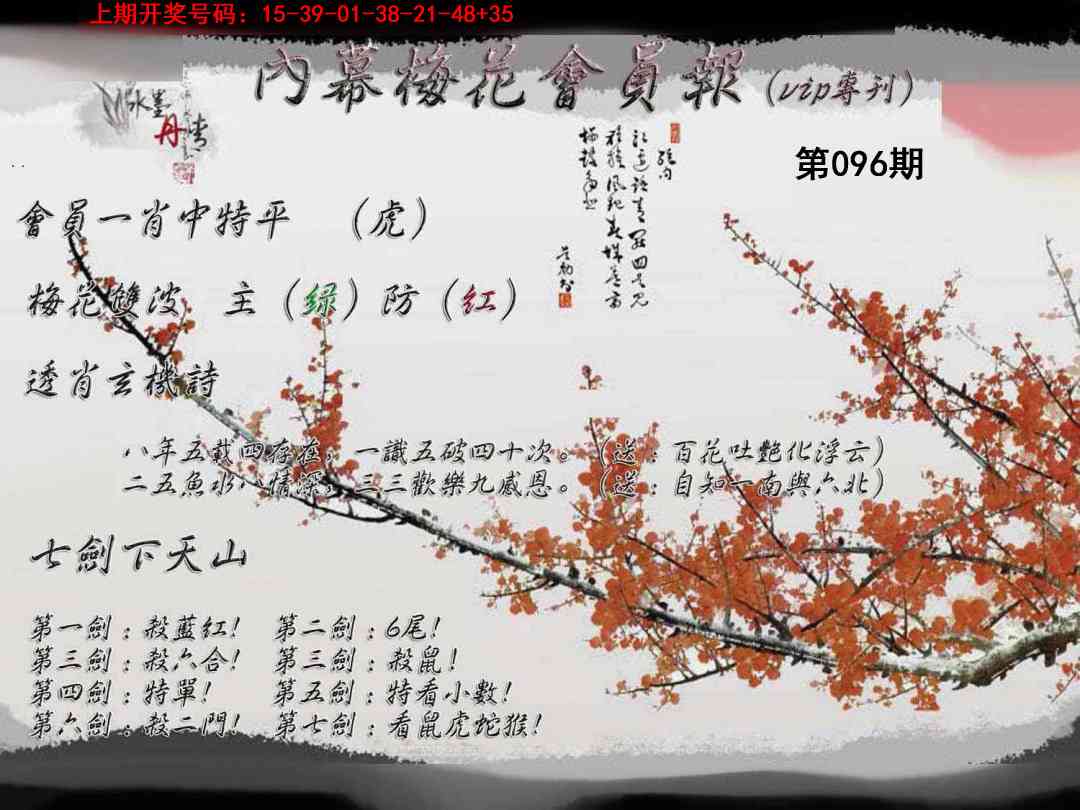 上期开奖号码：15-39-01-38-21-48+35
內幕梅花會員報（vip專刊）
水墨
丹青
第096期
會員一肖中特平　（虎）
梅花雙波　主（绿）防（红）
透肖玄機詩
八年五載四存在，一識五破四十次。（送：百花吐艷化浮云）
二五魚水八情深，三三歡樂九感恩。（送：自知一南與六北）
七劍下天山
第一劍：殺藍红！　第二劍：6尾！
第三劍：殺六合！　第三劍：殺鼠！
第四劍：特單！　第五劍：特看小數！
第六劍：殺二門！　第七劍：看鼠虎蛇猴！